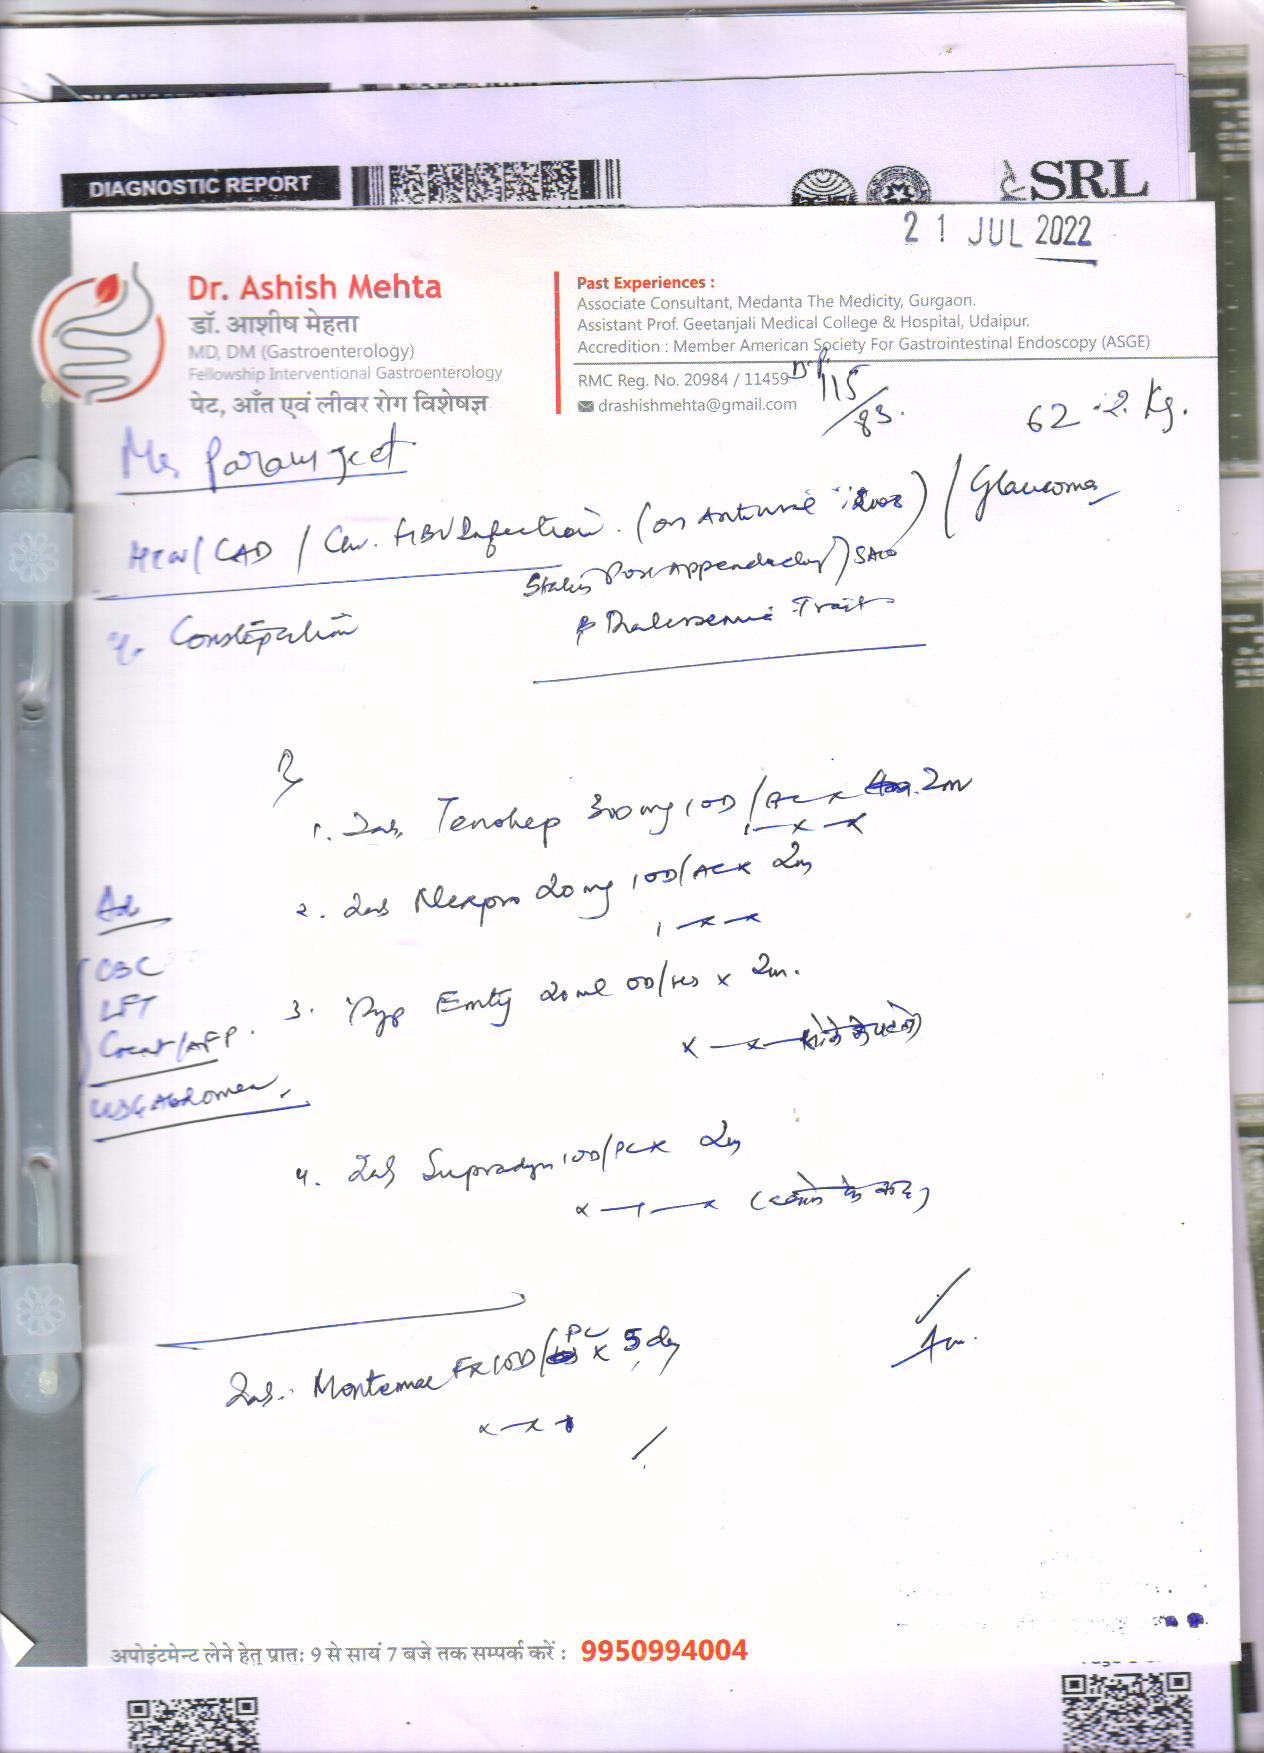 DIAGNOSTIC REPORT
SRL
21 JUL 2022
Dr. Ashish Mehta
डॉ. आशीष मेहता
MD, DM (Gastroenterology)
Fellowship Interventional Gastroenterology
पेट, आँत एवं लीवर रोग विशेषज्ञ
Past Experiences :
Associate Consultant, Medanta The Medicity, Gurgaon.
Assistant Prof. Geetanjali Medical College & Hospital, Udaipur.
Accredition : Member American Society For Gastrointestinal Endoscopy (ASGE)
RMC Reg. No. 20984 / 11459
drashishmehta@gmail.com
115/83.
62.2 Kg.
Paramjeet
HTN/CAD / HBV Infection. (on / Glaucoma
Status Post Appendectomy)
β Thalassemia Trait
Constipation
1. Tab. Tenohep 300mg 1 OD/AC x 2m
1 — x — x
2. Tab Nexpro 20mg 1 OD/AC x 2m
1 — x — x
3. Syp Emty 20ml OD/HS x 2m.
x — x — सोने से पहले)
4. Tab Supradyn 1 OD/PC x 2m
x — 1 — x (खाने के बाद)
Adv
CBC
LFT
Creat/AFP.
USG Abdomen
Tab. Montemac FX 1 OD/PC x 5 day
x — x — 1
अपोइंटमेन्ट लेने हेतु प्रातः 9 से सायं 7 बजे तक सम्पर्क करें : 9950994004